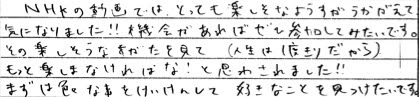 NHKの動画では、とっても楽しそなようすがうかがえて
気になりました!! 機会があればぜひ参加してみたいです。
その楽しそうなすがたを見て (人生は1度きりだから)
もっと楽しまなければな! と思わされました!!
まずは色々な事をけいけんして 好きなことを見つけたいです